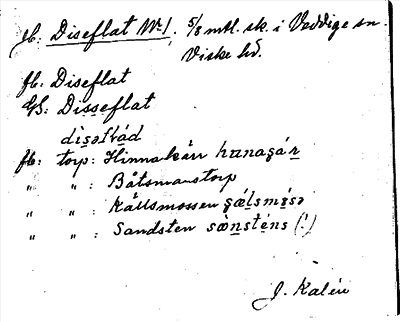 fb: Diseflat Nr 1. 5/8 mtl. sk. i Veddige sn.
Viske hd.
fb: Diseflat
GS: Disseflat
disəflád
fb: torp: Hinnakärr hunagár
" " : Båtsmanstorp
" " : Källsmossen gálsmósə
" " : Sandsten sànsténs (!)
J. Kalén